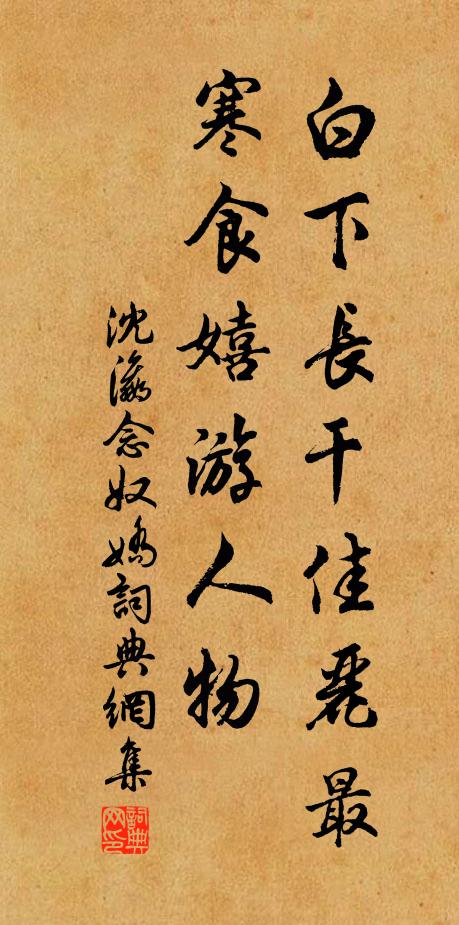 白下長干佳麗最
寒食嬉游人物
沈瀛念奴嬌詞典網集
詞典
网印